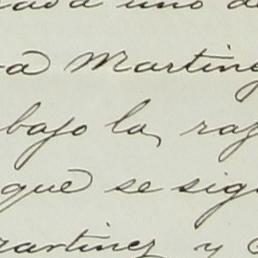 uno de
a Martine
bajo la, raz
que se sig
artinez y